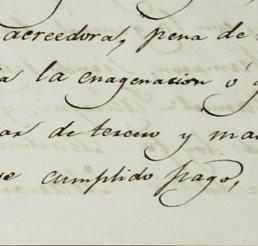 acreedora, pena de
la enagenacion ó
de tercero y
cumplido pago,